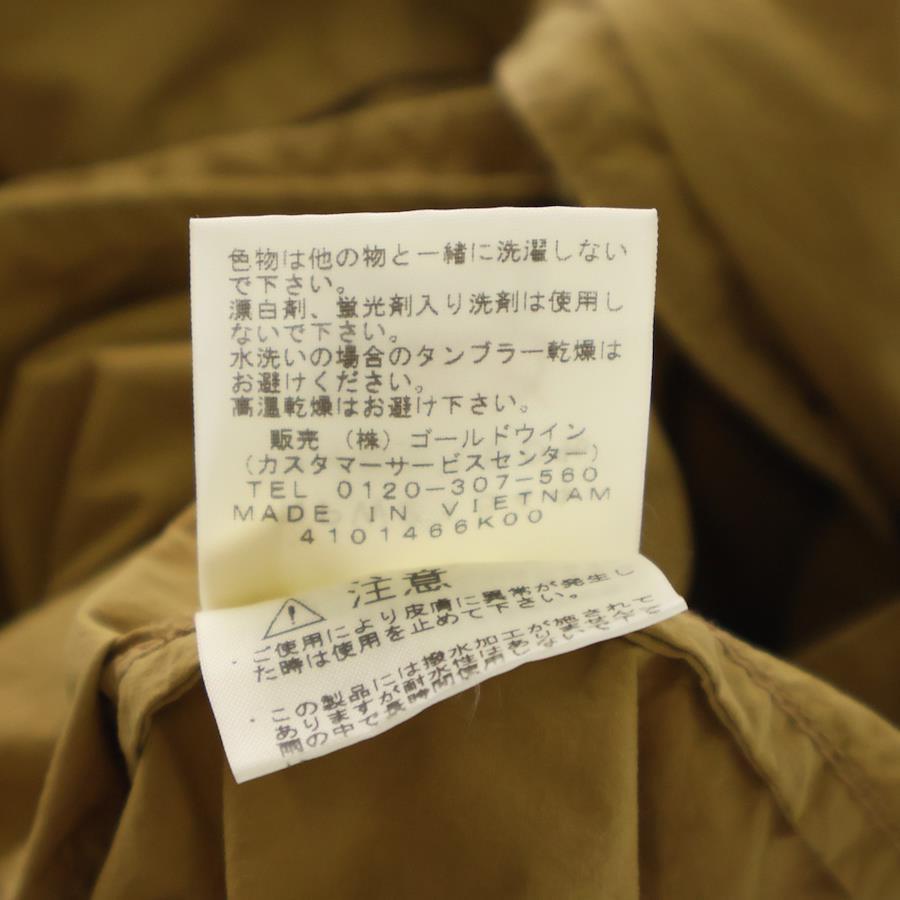 色物は他の物と一緒に洗濯しない
で下さい。
漂白剤、蛍光剤入り洗剤は使用し
ないで下さい。
水洗いの場合のタンブラー乾燥は
お避けください。
高温乾燥はお避け下さい。
販売 (株) ゴールドウイン
(カスタマーサービスセンター)
TEL 0120-307-560
MADE IN VIETNAM
4101466K00
注意
ご使用により皮膚に異常が発生し
た時は使用を止めて下さい。
この製品には撥水加工が施されて
ありますが耐水性はありませんので
雨の中で長時間使用しないで